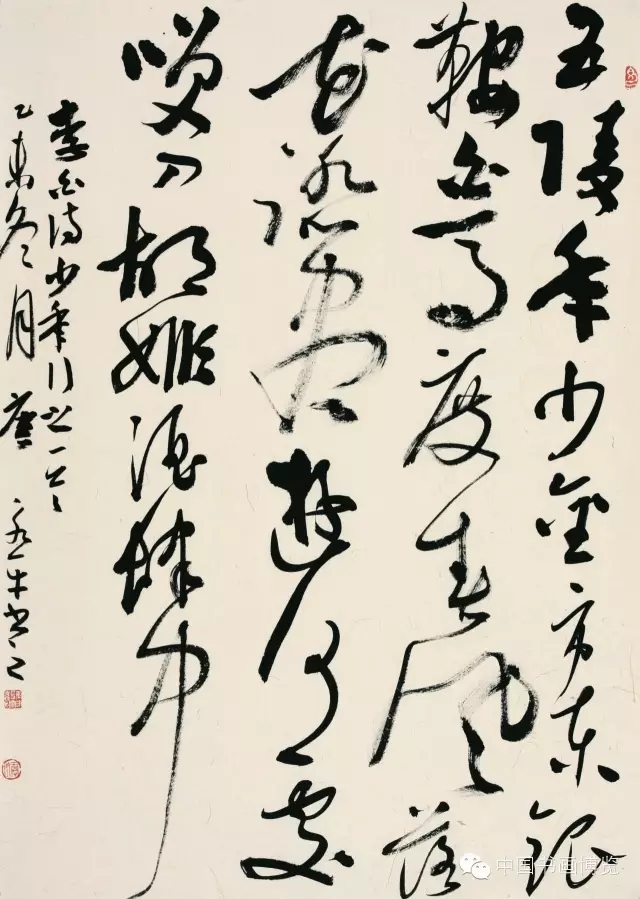 五陵年少金市東銀
鞍白馬度春風落
花踏盡遊何處
笑入胡姬酒肆中
李白詩少年行之一
乙未冬月
中国书画博览